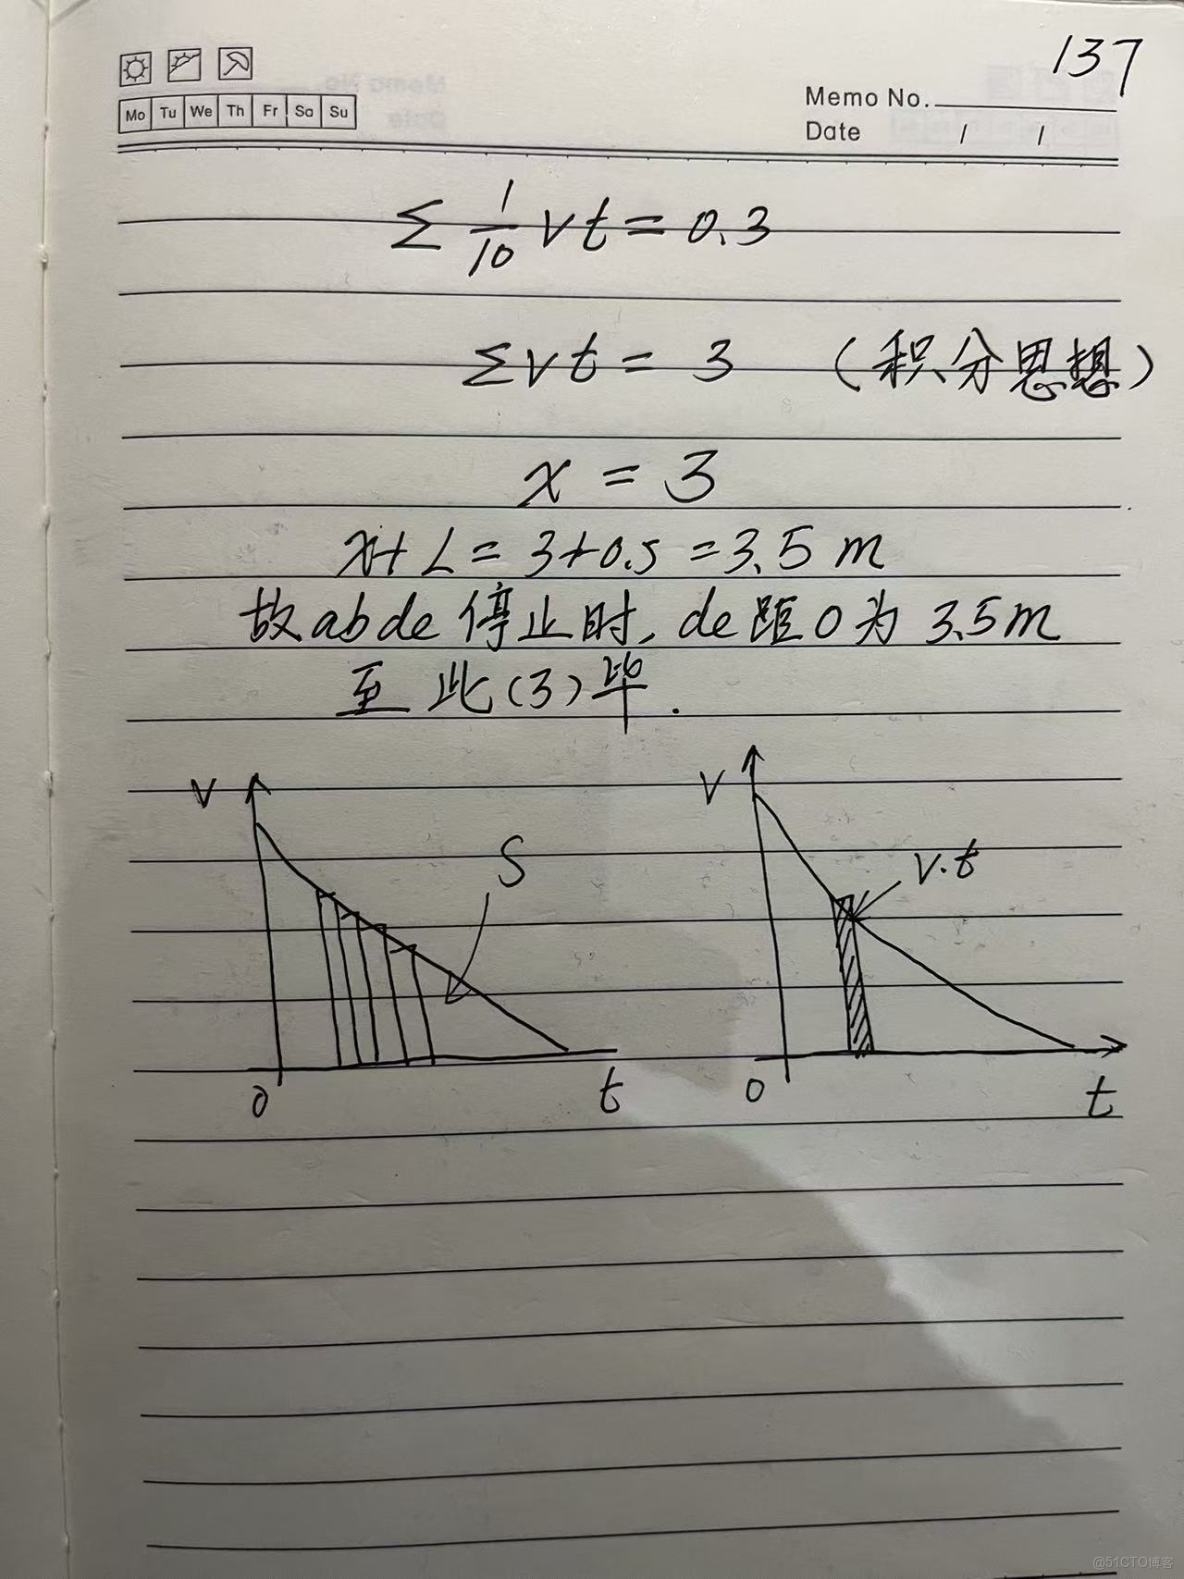 137
Mo Tu We Th Fr Sa Su
Memo No.
Date / /
Σ 1/10 vt = 0.3
Σvt = 3 (积分思想)
x = 3
x+L = 3+0.5 = 3.5 m
故abde停止时, de距O为3.5m
至此(3)毕.
V
S
O
t
V
v·t
O
t
@51CTO博客